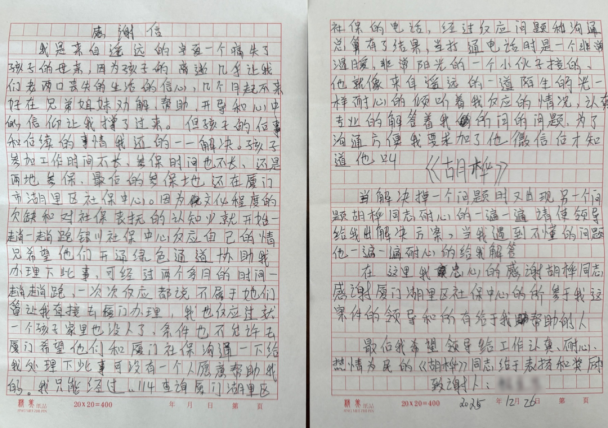 感谢信
我是来自遥远的 一个痛失了
孩子的母亲,因为孩子的离 几乎让我
们老两口丧失的生活的信心,几个月起不来
好在兄弟姐妹劝解、帮助、开导和心中
的信仰让我撑了过来。但孩子的 事
和后续的事情我道的一一解决。孩子
参加工作时间不长,参保时间也不长,还是
两地参保,最后的参保地 还在厦门
市湖里区社保中心。因为 文化程度的
欠缺和对社保 的认知 就开始一
趟一趟跑 社保中心反应自己的情
况希望他们开通绿色通道协助我
办理下此事,可经过两个多月的时间一
趟趟跑,一次次反应都说不属于她们
管让我直接去厦门办理,我也反应过就
一个孩子家里也没人了,条件也不允许去
厦门希望他们和厦门社保沟通一下给
我办理下此事可没有一个人愿意帮助我
的,我只能 过 114查询厦门湖里区
20×20=400
年 月 日 第 页
社保的电话,经过反应问题和沟通
总算有了结果,当打通电话时是一个非常
温暖、非常阳光的一个小伙子接的。
他就像来自遥远的一道陌生的光一
样耐心的倾听着我反应的情况,认真
专业的解答着我的问的问题。为了
沟通方便我要求加了他微信后才知
道他叫
《胡桦》
当解决掉一个问题时又出现另一个问
题胡桦同志耐心的一遍一遍请使领导
给我出解决方案,当我遇到不懂的问题
他一遍一遍耐心的给我解答
在这里我衷心的感谢胡桦同志
感谢厦门湖里区社保中心的所参于我这
案件的领导和所有给于我帮助的人
最后我希望领导给工作认真、耐心、
热情为民的《胡桦》同志给于表扬和奖励
致谢人:
2025 12月26
20×20=400
年 月 日 第 页